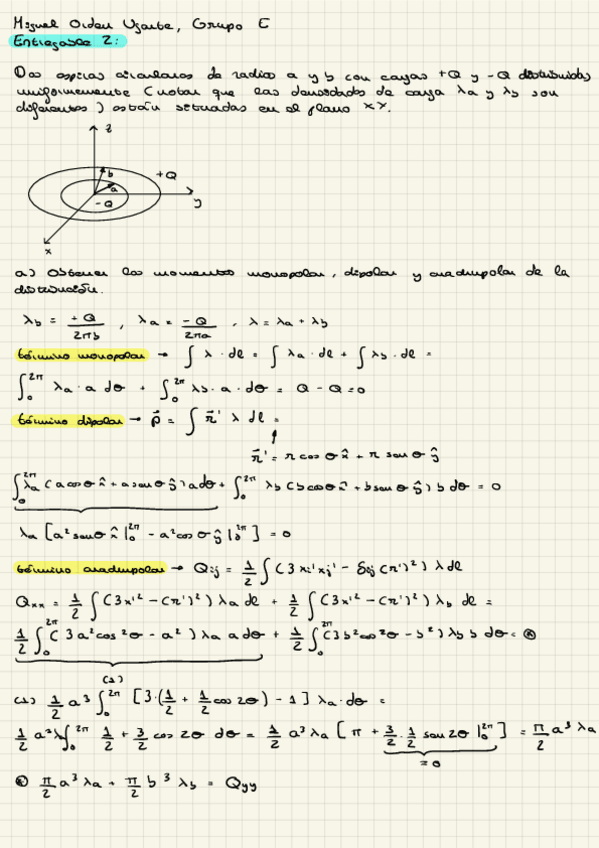 Miguel Orden Ugarte, Grupo E
Entregable 2:
Dos espiras circulares de radios a y b con cargas +Q y -Q distribuidas
uniformemente (notar que las densidades de carga λa y λb son
diferentes) están situadas en el plano XY.
z
b
+Q
a
-Q
y
x
a) Obtener los momentos monopolar, dipolar y cuadrupolar de la
distribución.
λb = +Q/2πb , λa = -Q/2πa , λ = λa + λb
término monopolar → ∫ λ · dl = ∫ λa · dl + ∫ λb · dl =
∫₀^2π λa · a dθ + ∫₀^2π λb · a · dθ = Q - Q = 0
término dipolar → p⃗ = ∫ r⃗' λ dl =
r⃗' = r cos θ x̂ + r sen θ ŷ
∫₀^2π λa (a cos θ x̂ + a sen θ ŷ) a dθ + ∫₀^2π λb (b cos θ x̂ + b sen θ ŷ) b dθ = 0
λa [a² sen θ x̂ |₀^2π - a² cos θ ŷ |₀^2π] = 0
término cuadrupolar → Qij = 1/2 ∫ (3 xi' xj' - δij (r')²) λ dl
Qxx = 1/2 ∫ (3x'² - (r')²) λa dl + 1/2 ∫ (3x'² - (r')²) λb dl =
1/2 ∫₀^2π (3a² cos² θ - a²) λa a dθ + 1/2 ∫₀^2π (3b² cos² θ - b²) λb b dθ = ⊛
(1)
(1) 1/2 a³ ∫₀^2π [3·(1/2 + 1/2 cos 2θ) - 1] λa · dθ =
1/2 a³ λa ∫₀^2π 1/2 + 3/2 cos 2θ dθ = 1/2 a³ λa [π + 3/2 · 1/2 sen 2θ |₀^2π] = π/2 a³ λa
= 0
⊛ π/2 a³ λa + π/2 b³ λb = Qyy